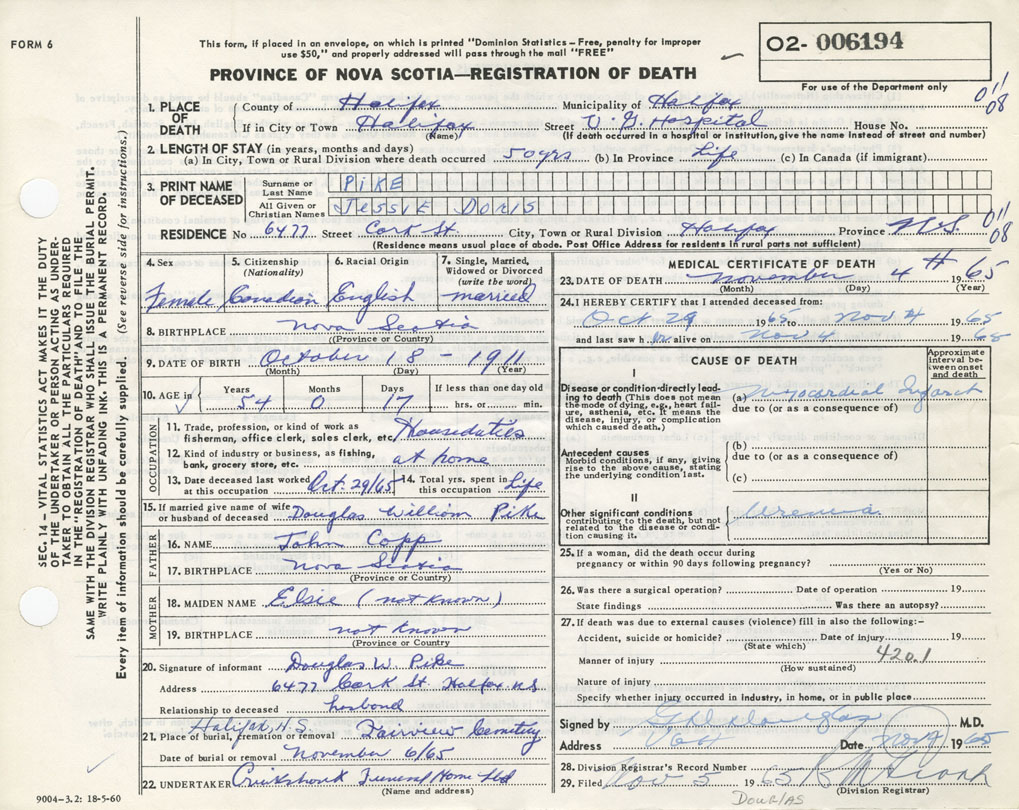 FORM 6
This form, if placed in an envelope, on which is printed "Dominion Statistics – Free, penalty for improper
use $50," and properly addressed will pass through the mail "FREE"
PROVINCE OF NOVA SCOTIA—REGISTRATION OF DEATH
02- 006194
For use of the Department only
1. PLACE OF DEATH
County of Halifax Municipality of Halifax
If in City or Town Halifax Street V. G. Hospital House No.
(Name) (If death occurred in a hospital or institution, give the name instead of street and number)
01/08
2. LENGTH OF STAY (in years, months and days)
(a) In City, Town or Rural Division where death occurred 50 yrs (b) In Province Life (c) In Canada (if immigrant)
3. PRINT NAME OF DECEASED
Surname or Last Name PIKE
All Given or Christian Names JESSIE DORIS
RESIDENCE No 6477 Street Cork St. City, Town or Rural Division Halifax Province N.S.
01/08
(Residence means usual place of abode. Post Office Address for residents in rural parts not sufficient)
4. Sex
Female
5. Citizenship (Nationality)
Canadian
6. Racial Origin
English
7. Single, Married, Widowed or Divorced (write the word)
married
8. BIRTHPLACE Nova Scotia
(Province or Country)
9. DATE OF BIRTH October 18 - 1911
(Month) (Day) (Year)
10. AGE in Years 54 Months 0 Days 17 If less than one day old hrs. or min.
OCCUPATION
11. Trade, profession, or kind of work as
fisherman, office clerk, sales clerk, etc. Houseduties
12. Kind of industry or business, as fishing,
bank, grocery store, etc. at home
13. Date deceased last worked at this occupation Oct. 29/65 14. Total yrs. spent in this occupation Life
15. If married give name of wife or husband of deceased Douglas William Pike
FATHER
16. NAME John Copp
17. BIRTHPLACE Nova Scotia
(Province or Country)
MOTHER
18. MAIDEN NAME Elsie (not known)
19. BIRTHPLACE not known
(Province or Country)
20. Signature of informant Douglas W. Pike
Address 6477 Cork St. Halifax N.S.
Relationship to deceased husband
Halifax, N.S.
21. Place of burial, cremation or removal Fairview Cemetery
Date of burial or removal November 6/65
22. UNDERTAKER Cruikshank Funeral Home Ltd
(Name and address)
9004–3.2: 18-5-60
MEDICAL CERTIFICATE OF DEATH
23. DATE OF DEATH November 4 1965
(Month) (Day) (Year)
24. I HEREBY CERTIFY that I attended deceased from:
Oct 29 1965 to Nov 4 1965
and last saw h er alive on Nov 4 1965
CAUSE OF DEATH
Approximate interval between onset and death
I
Disease or condition directly leading to death (This does not mean the mode of dying, e.g., heart failure, asthenia, etc. It means the disease, injury, or complication which caused death.)
(a) Myocardial Infarct
due to (or as a consequence of)
Antecedent causes
Morbid conditions, if any, giving rise to the above cause, stating the underlying condition last.
(b)
due to (or as a consequence of)
(c)
II
Other significant conditions contributing to the death, but not related to the disease or condition causing it.
Uremia
25. If a woman, did the death occur during
pregnancy or within 90 days following pregnancy?
(Yes or No)
26. Was there a surgical operation? Date of operation 19
State findings Was there an autopsy?
27. If death was due to external causes (violence) fill in also the following:–
Accident, suicide or homicide? Date of injury 19
(State which)
Manner of injury 420.1
(How sustained)
Nature of injury
Specify whether injury occurred in industry, in home, or in public place
Signed by Douglas M.D.
Address Date Nov 1965
28. Division Registrar's Record Number
29. Filed Nov 5 1965
(Division Registrar)
DOUGLAS
SEC. 14 — VITAL STATISTICS ACT MAKES IT THE DUTY
OF THE UNDERTAKER OR PERSON ACTING AS UNDER-
TAKER TO OBTAIN ALL THE PARTICULARS REQUIRED
IN THE "REGISTRATION OF DEATH" AND TO FILE THE
SAME WITH THE DIVISION REGISTRAR WHO SHALL ISSUE THE BURIAL PERMIT.
WRITE PLAINLY WITH UNFADING INK. THIS IS A PERMANENT RECORD.
Every item of information should be carefully supplied. (See reverse side for instructions.)